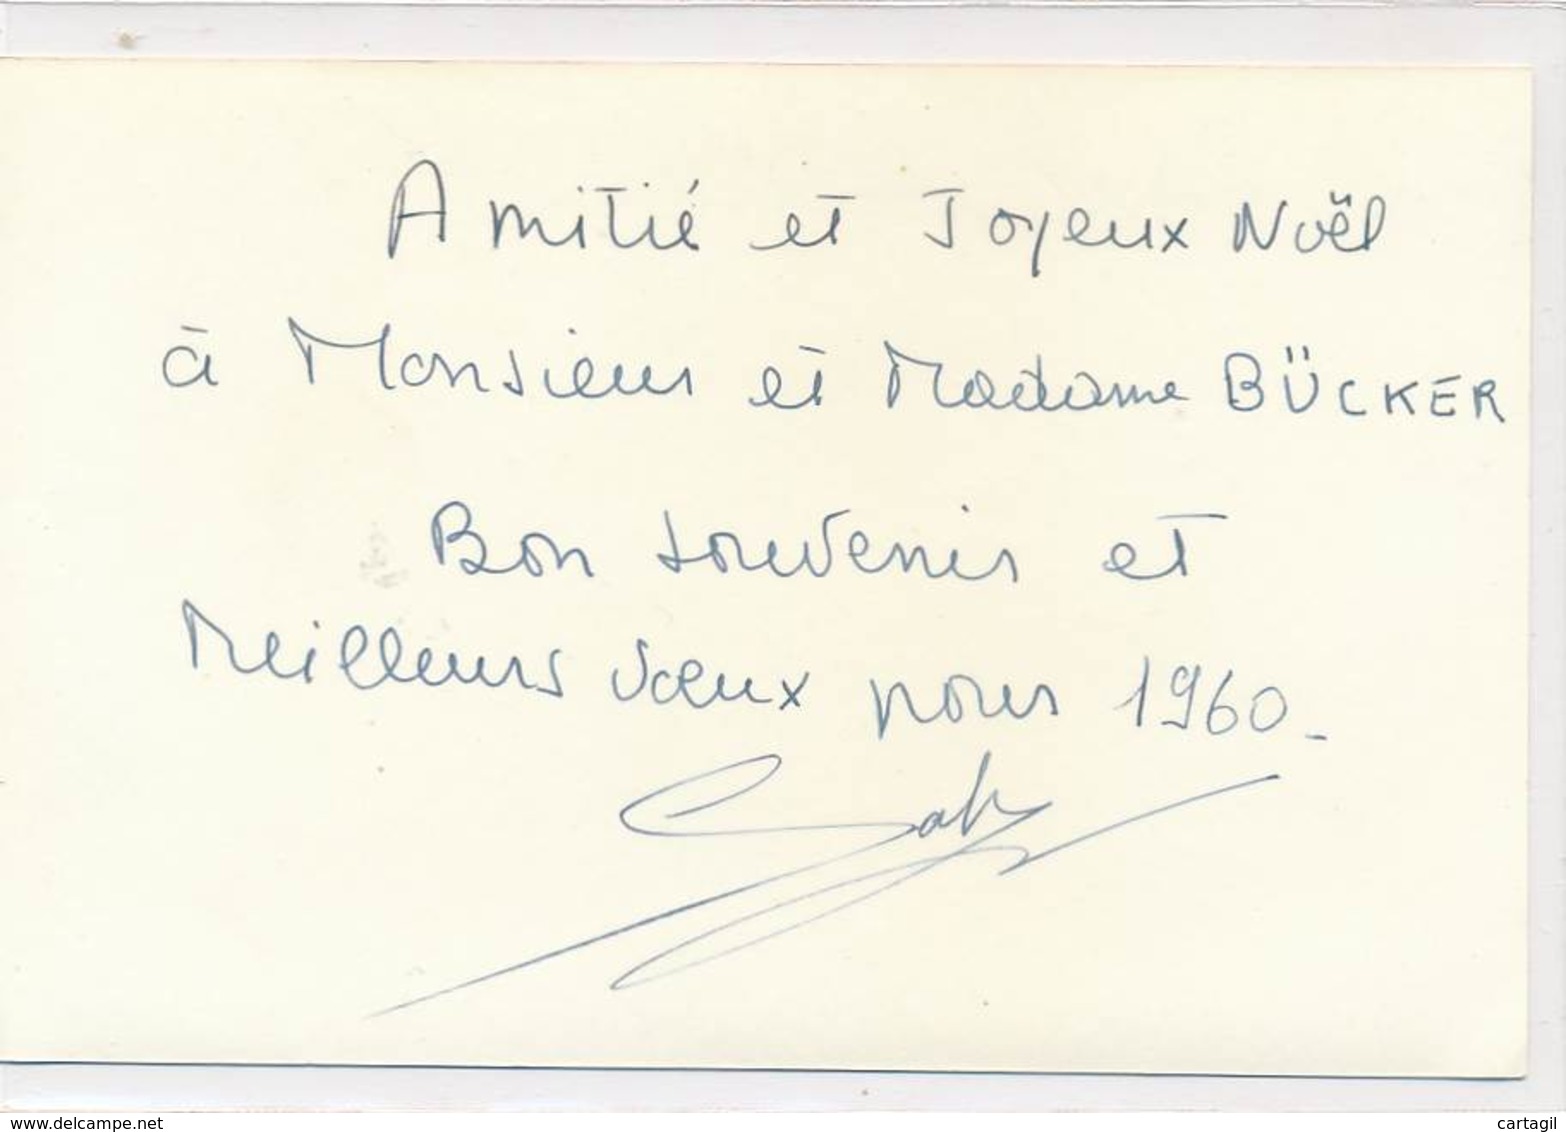 Amitié et Joyeux Noël
à Monsieur et Madame BÜCKER
Bon souvenir et
Meilleurs vœux pour 1960_
www.delcampe.net
cartagil